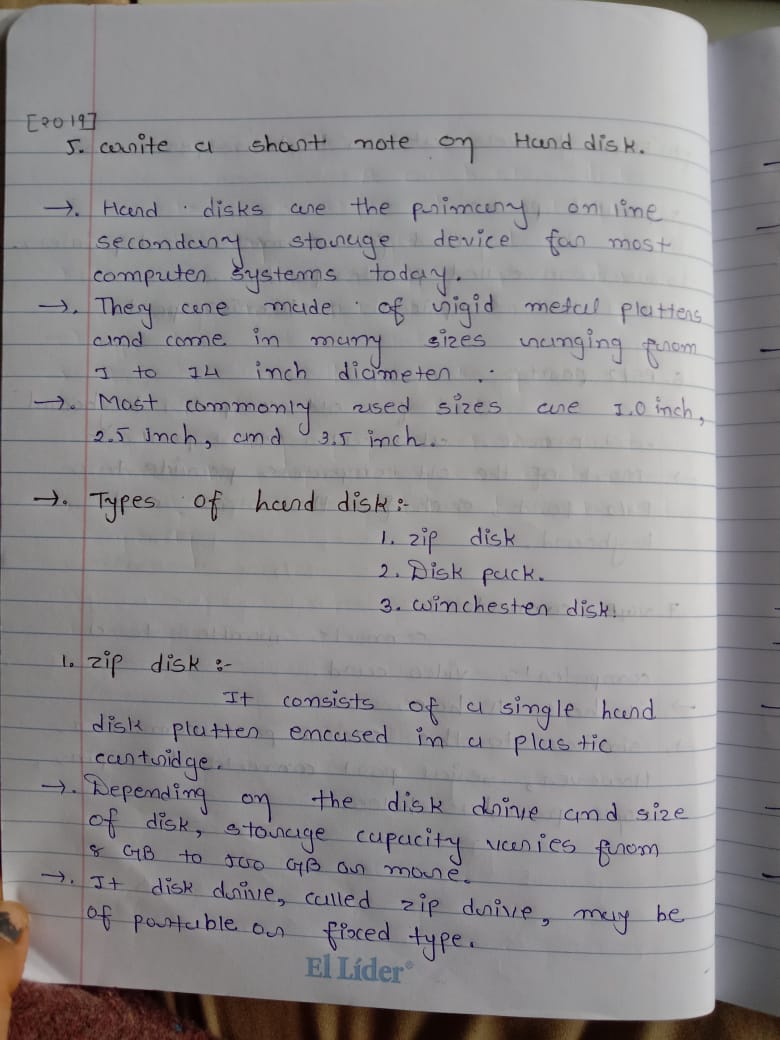 [2019]
5. write a short note on Hard disk.
→. Hard disks are the primary, on line
secondary storage device for most
computer systems today.
→. They are made of rigid metal platters
and come in many sizes ranging from
1 to 14 inch diameter.
→. Most commonly used sizes are 1.0 inch,
2.5 inch, and 3.5 inch.
→. Types of hard disk :-
1. zip disk
2. Disk pack.
3. winchester disk.
1. zip disk :-
It consists of a single hard
disk platter encased in a plastic
cartridge.
→. Depending on the disk drive and size
of disk, storage capacity varies from
8 GB to 500 GB or more.
→. It disk drive, called zip drive, may be
of portable or fixed type.
El Líder®